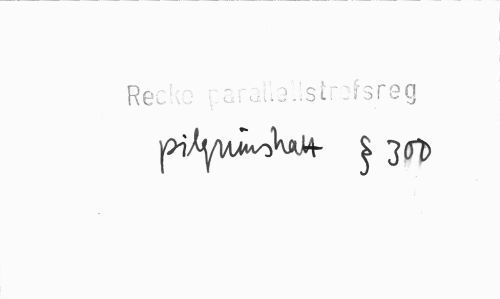 Recke parallellstrofsreg
pilgrimshatt § 300